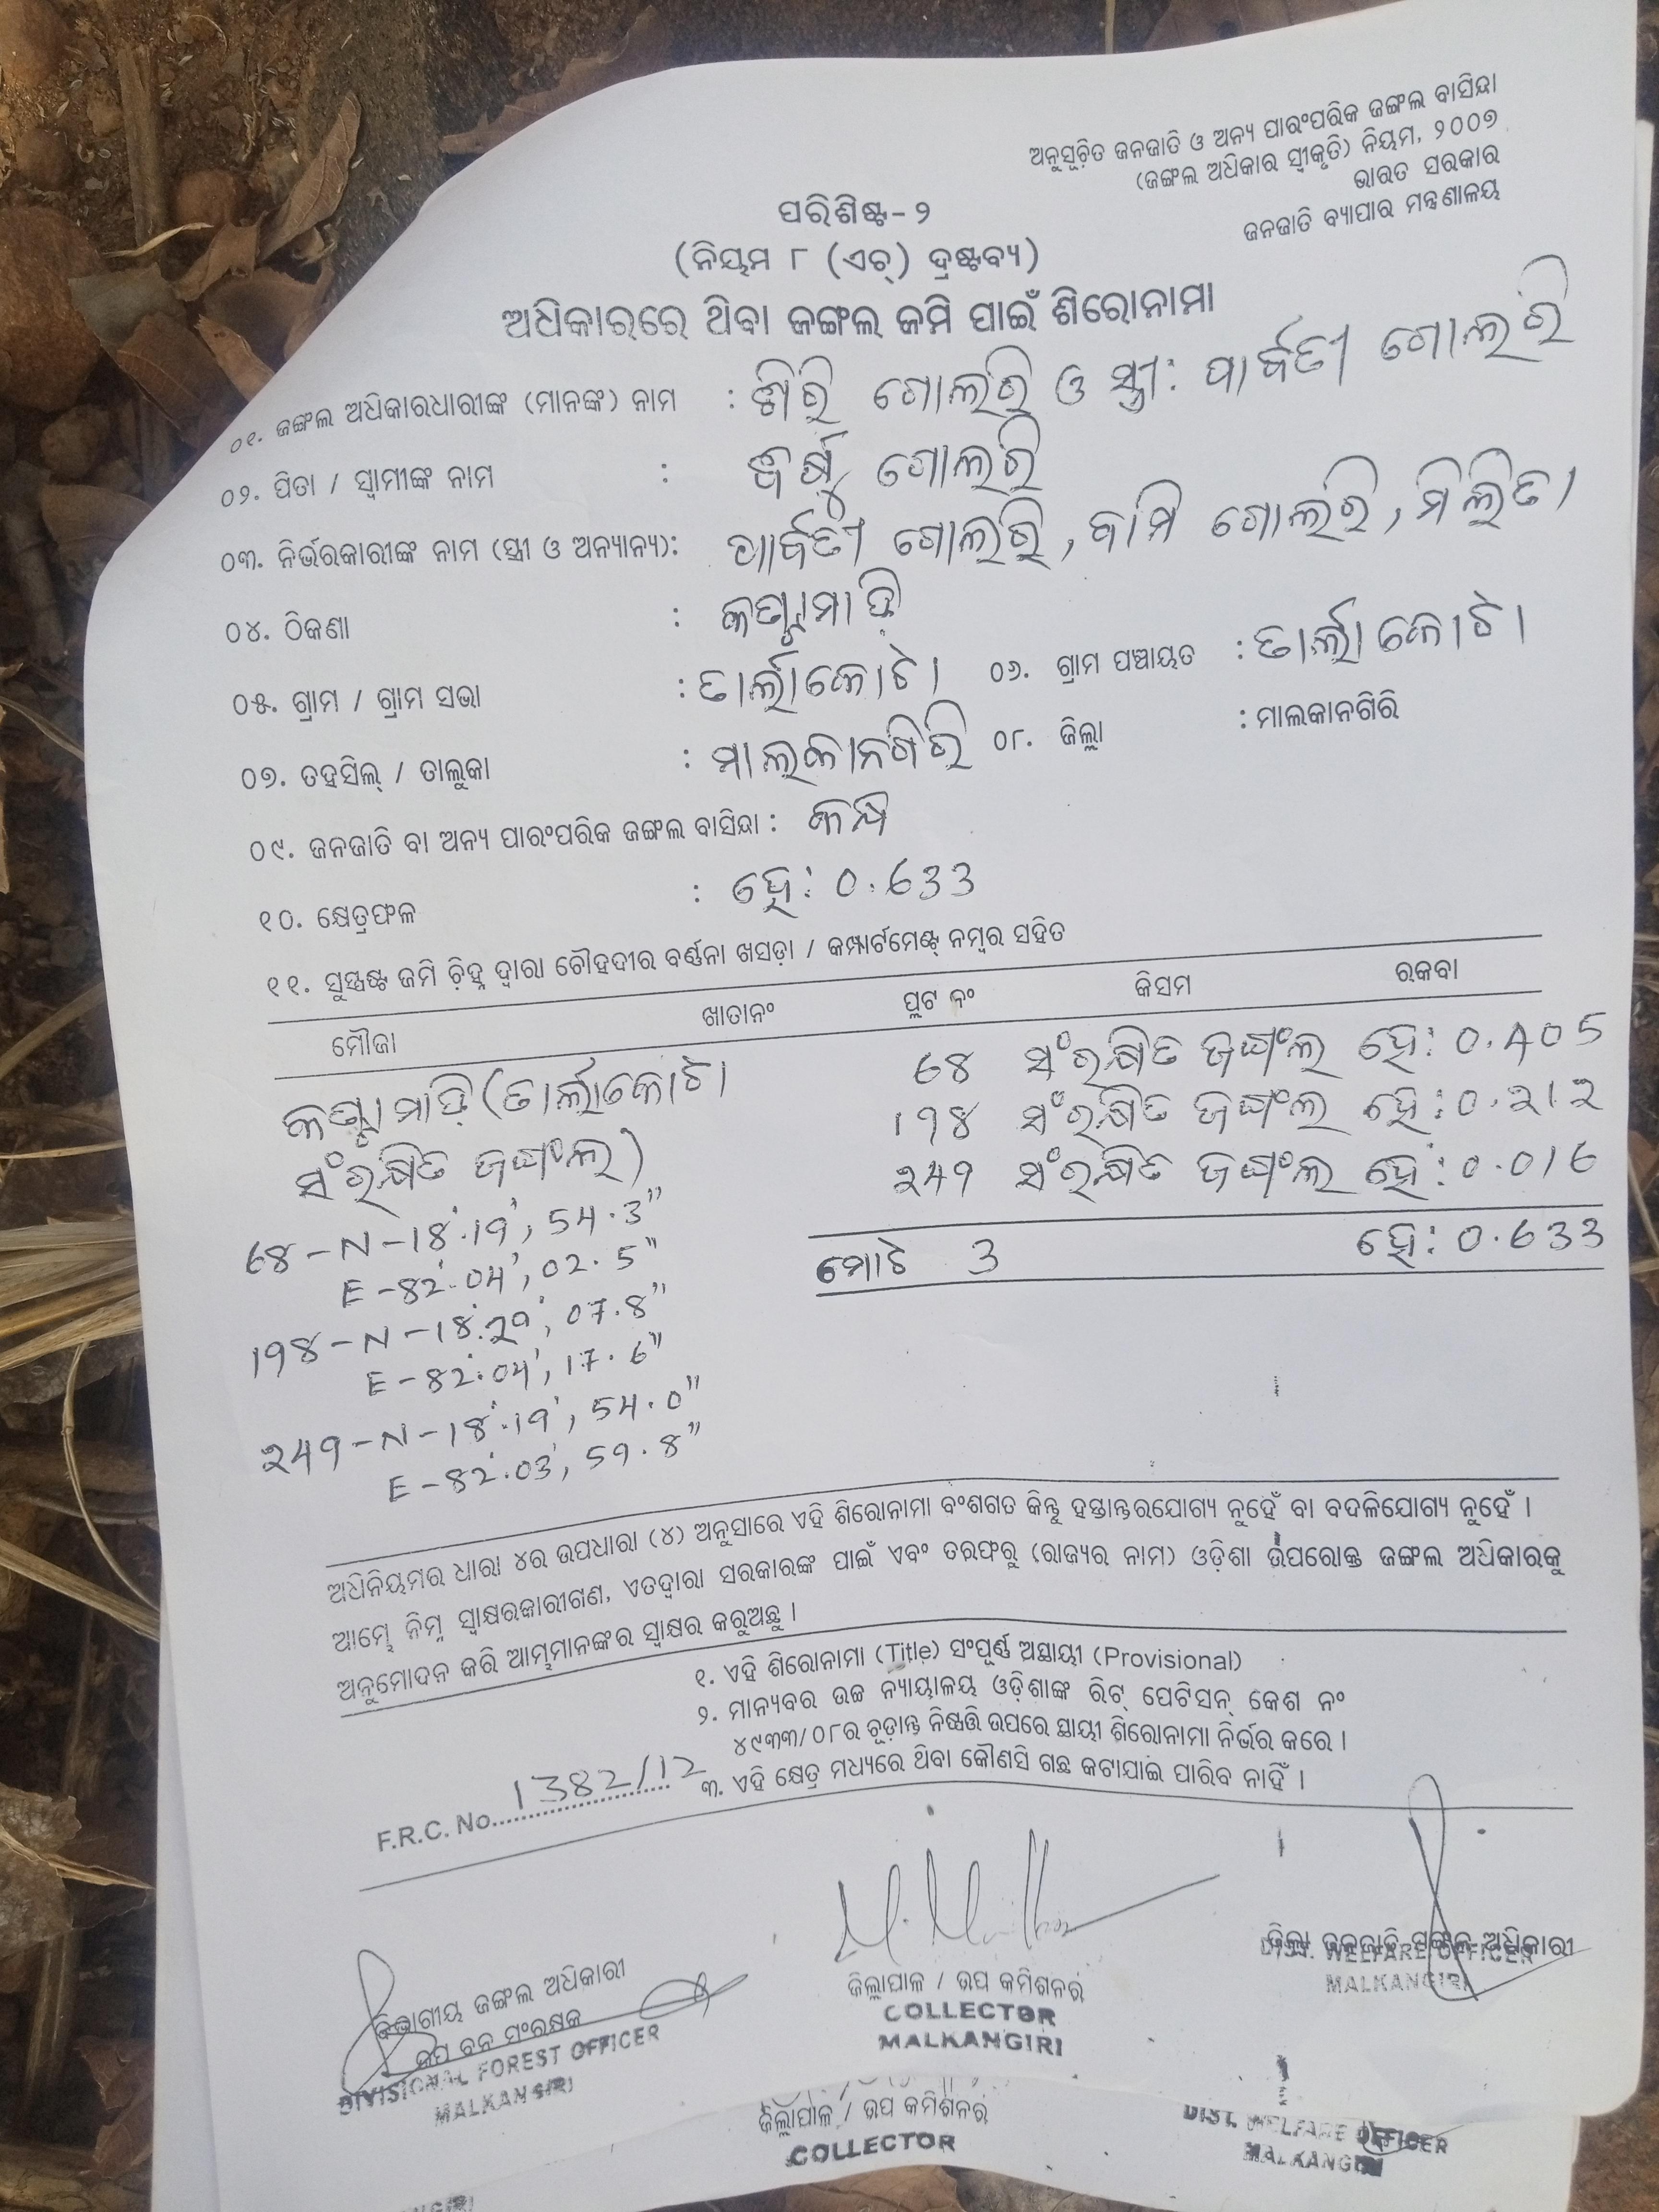 ଅନୁସୂଚିତ ଜନଜାତି ଓ ଅନ୍ୟ ପାରଂପରିକ ଜଙ୍ଗଲ ବାସିନ୍ଦା
(ଜଙ୍ଗଲ ଅଧିକାର ସ୍ୱୀକୃତି) ନିୟମ, ୨୦୦୭
ଭାରତ ସରକାର
ଜନଜାତି ବ୍ୟାପାର ମନ୍ତ୍ରଣାଳୟ
ପରିଶିଷ୍ଟ-୨
(ନିୟମ ୮ (ଏଚ୍) ଦ୍ରଷ୍ଟବ୍ୟ)
ଅଧିକାରରେ ଥିବା ଜଙ୍ଗଲ ଜମି ପାଇଁ ଶିରୋନାମା
୦୧. ଜଙ୍ଗଲ ଅଧିକାରଧାରୀଙ୍କ (ମାନଙ୍କ) ନାମ : ଶିରି ଗୋଲରି ଓ ସ୍ତ୍ରୀ: ପାର୍ବତୀ ଗୋଲରି
୦୨. ପିତା / ସ୍ୱାମୀଙ୍କ ନାମ : ଗୋଲରି
୦୩. ନିର୍ଭରକାରୀଙ୍କ ନାମ (ସ୍ତ୍ରୀ ଓ ଅନ୍ୟାନ୍ୟ): ପାର୍ବତୀ ଗୋଲରି, ବାମି ଗୋଲରି, ମିଲିତା
୦୪. ଠିକଣା :
୦୫. ଗ୍ରାମ / ଗ୍ରାମ ସଭା : ତାର୍ଲାକୋଟା ୦୬. ଗ୍ରାମ ପଞ୍ଚାୟତ : ତାର୍ଲାକୋଟା
୦୭. ତହସିଲ୍ / ତାଲୁକା : ମାଲକାନଗିରି ୦୮. ଜିଲ୍ଲା : ମାଲକାନଗିରି
୦୯. ଜନଜାତି ବା ଅନ୍ୟ ପାରଂପରିକ ଜଙ୍ଗଲ ବାସିନ୍ଦା : କନ୍ଧ
୧୦. କ୍ଷେତ୍ରଫଳ : ହେ: 0.633
୧୧. ସୁସ୍ପଷ୍ଟ ଜମି ଚିହ୍ନ ଦ୍ୱାରା ଚୌହଦୀର ବର୍ଣ୍ଣନା ଖସଡ଼ା / କମ୍ପାର୍ଟମେଣ୍ଟ୍ ନମ୍ବର ସହିତ
ମୌଜା ଖାତାନଂ ପ୍ଲଟ ନଂ କିସମ ରକବା
(ତାର୍ଲାକୋଟା 68 ସଂରକ୍ଷିତ ଜଙ୍ଗଲ ହେ: 0.405
ସଂରକ୍ଷିତ ଜଙ୍ଗଲ) 198 ସଂରକ୍ଷିତ ଜଙ୍ଗଲ ହେ: 0.212
249 ସଂରକ୍ଷିତ ଜଙ୍ଗଲ ହେ: 0.016
ମୋଟ 3 ହେ: 0.633
68-N-18°.19', 54.3"
E-82°.04', 02.5"
198-N-18°.20', 07.8"
E-82°.04', 17.6"
249-N-18°.19', 54.0"
E-82°.03', 59.8"
ଅଧିନିୟମର ଧାରା ୪ର ଉପଧାରା (୪) ଅନୁସାରେ ଏହି ଶିରୋନାମା ବଂଶଗତ କିନ୍ତୁ ହସ୍ତାନ୍ତରଯୋଗ୍ୟ ନୁହେଁ ବା ବଦଳିଯୋଗ୍ୟ ନୁହେଁ ।
ଆମ୍ଭେ ନିମ୍ନ ସ୍ୱାକ୍ଷରକାରୀଗଣ, ଏତଦ୍ୱାରା ସରକାରଙ୍କ ପାଇଁ ଏବଂ ତରଫରୁ (ରାଜ୍ୟର ନାମ) ଓଡ଼ିଶା ଉପରୋକ୍ତ ଜଙ୍ଗଲ ଅଧିକାରକୁ
ଅନୁମୋଦନ କରି ଆମ୍ଭମାନଙ୍କର ସ୍ୱାକ୍ଷର କରୁଅଛୁ ।
୧. ଏହି ଶିରୋନାମା (Title) ସଂପୂର୍ଣ୍ଣ ଅସ୍ଥାୟୀ (Provisional)
୨. ମାନ୍ୟବର ଉଚ୍ଚ ନ୍ୟାୟାଳୟ ଓଡ଼ିଶାଙ୍କ ରିଟ୍ ପେଟିସନ୍ କେଶ ନଂ
୪୯୩୩/୦୮ର ଚୂଡ଼ାନ୍ତ ନିଷ୍ପତ୍ତି ଉପରେ ସ୍ଥାୟୀ ଶିରୋନାମା ନିର୍ଭର କରେ ।
୩. ଏହି କ୍ଷେତ୍ର ମଧ୍ୟରେ ଥିବା କୌଣସି ଗଛ କଟାଯାଇ ପାରିବ ନାହିଁ ।
F.R.C. No. 1382/12
ବିଭାଗୀୟ ଜଙ୍ଗଲ ଅଧିକାରୀ
ଉପ ବନ ସଂରକ୍ଷକ
DIVISIONAL FOREST OFFICER
MALKANGIRI
ଜିଲ୍ଲାପାଳ / ଉପ କମିଶନର
COLLECTOR
MALKANGIRI
ଜିଲ୍ଲା ଜନଜାତି ମଙ୍ଗଳ ଅଧିକାରୀ
DIST. WELFARE OFFICER
MALKANGIRI
ଜିଲ୍ଲାପାଳ / ଉପ କମିଶନର
COLLECTOR
DIST. WELFARE OFFICER
MALKANGIRI